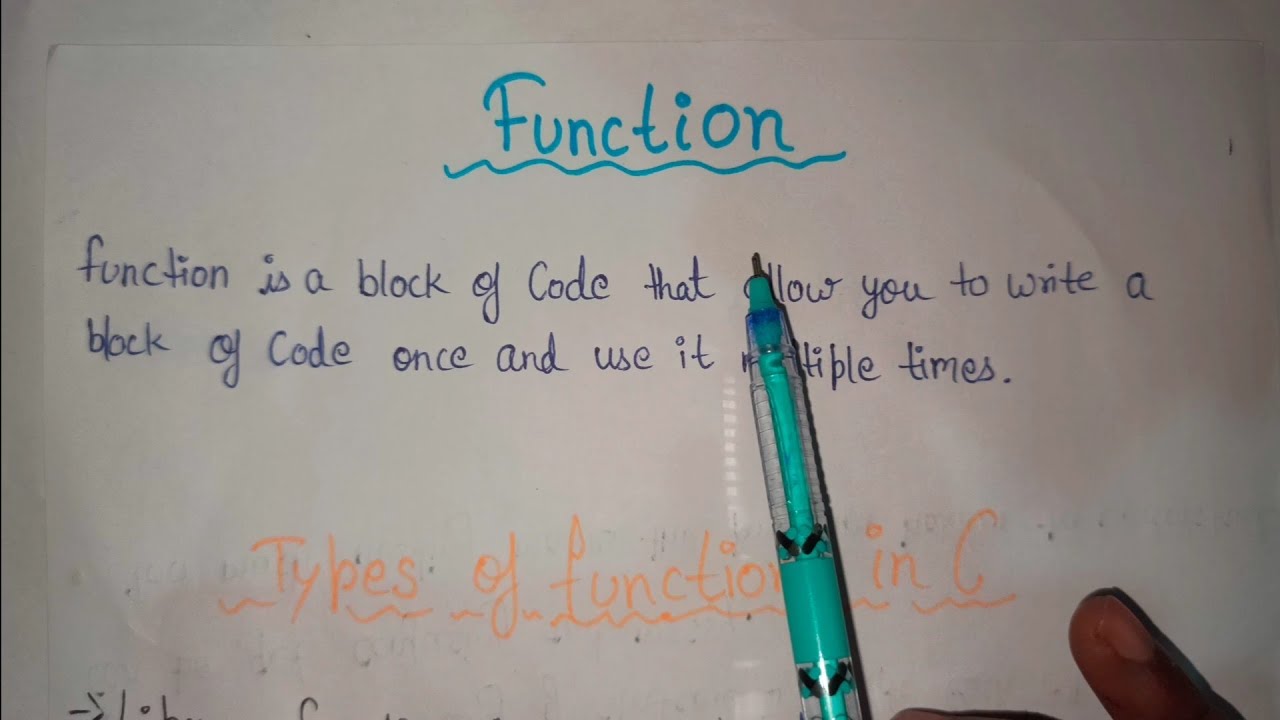 Function
function is a block of Code that allow you to write a
block of Code once and use it multiple times.
Types of function in C